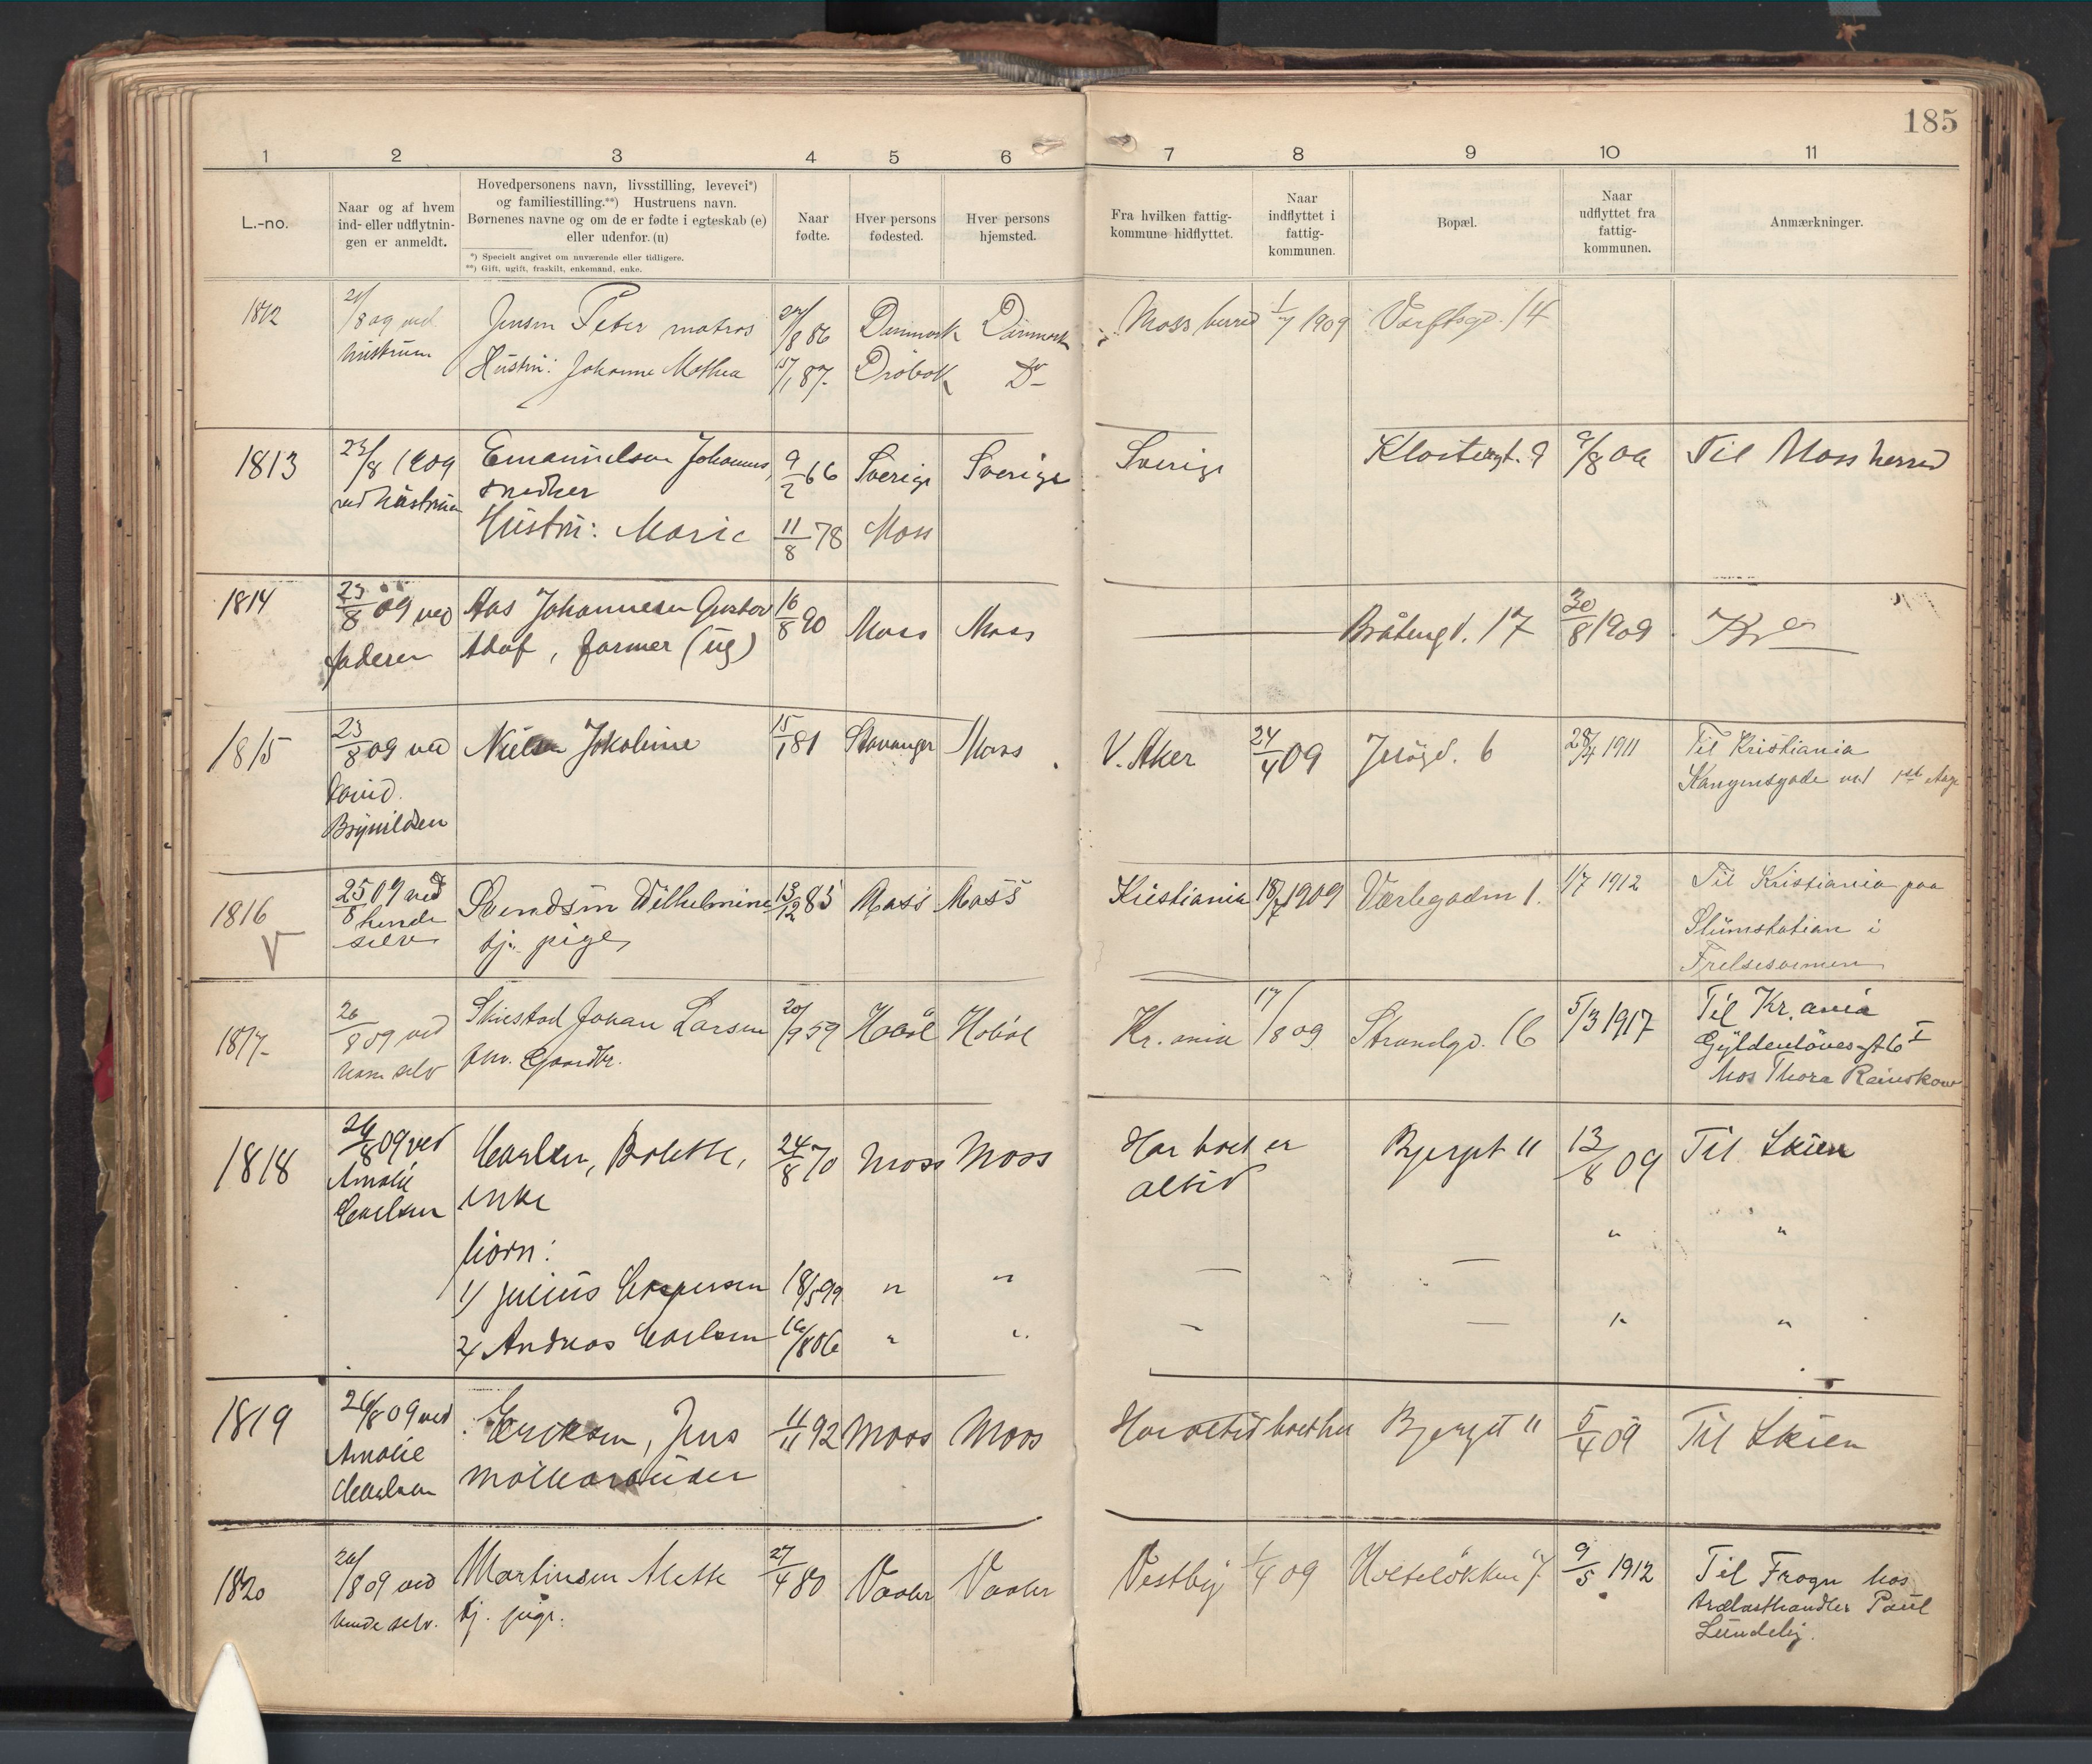 185
1 2 3 4 5 6 7 8 9 10 11
L.-no.
Naar og af hvem
ind- eller udflytnin-
gen er anmeldt.
Hovedpersonens navn, livsstilling, levevei*)
og familiestilling.**) Hustruens navn.
Børnenes navne og om de er fødte i egteskab (e)
eller udenfor. (u)
*) Specielt angivet om nuværende eller tidligere.
**) Gift, ugift, fraskilt, enkemand, enke.
Naar
fødte.
Hver persons
fødested.
Hver persons
hjemsted.
Fra hvilken fattig-
kommune hidflyttet.
Naar
indflyttet i
fattig-
kommunen.
Bopæl.
Naar
udflyttet fra
fattig-
kommunen.
Anmærkninger.
1812 21/8 09 ved Jensen Peter matros 24/8 86 Danmark Danmark Moss herred 1/7 1909 Værftsgd. 14
hustruen Hustru: Johanne Mathea 17/1 87. Drøbak Do
1813 23/8 1909 Emanuelsen Johannes, 9/2 66 Sverige Sverige Sverige Klostergt. 9 9/8 09 Til Moss herred
ved hustruen snedker
Hustru: Marie 11/8 78 Moss
1814 23/8 09 ved Aas Johannesen Gustav 16/8 90 Moss Moss Bråtengd. 17 30/8 1909 Kra
faderen Adolf, former (ug)
1815 23/8 09 ved Nielsen Jakobine 15/1 81 Stavanger Moss V. Aker 24/4 09 Jeløgd. 6 28/4 1911 Til Kristiania
David Brynildsen
1816 25/8 09 ved Svendsen Wilhelmine 13/12 83 Moss Moss Kristiania 18/7 1909 Værlegaden 1. 1/7 1912 Til Kristiania paa
hende selv tj. pige, Slumstation i
Frelsesarmeen
V
1817 26/8 09 ved Skiestad Johan Larsen 20/9 59 Hobøl Hobøl Kr.ania 17/8 09 Strandgd. 16 5/3 1917 Til Kr.ania
ham selv fhv. Gaardbr. Gyldenløvesgt 6 I
hos Thora
1818 26/8 09 ved Carlsen, Bolette, 24/8 70 Moss Moss Har boet er Bjergst 11 13/8 09 Til Skien
Amalie enke altid
Carlsen
børn: " "
1) Julius Caspersen 18/5 99 " " — —
2) Andreas Carlsen 16/8 06 " " — — " "
1819 26/8 09 ved Ericksen, Jens 11/11 92 Moss Moss Har altid boet her Bjergst 11 5/4 09 Til Skien
Amalie møllearbeider
Carlsen
1820 26/8 09 ved Martinsen Mette 27/4 80 Vaaler Vaaler Vestby 1/4 09 Holteløkken 7 9/5 1912 Til Frogn hos
hende selv. tj. pige. trælasthandler Paul
Lundeby.